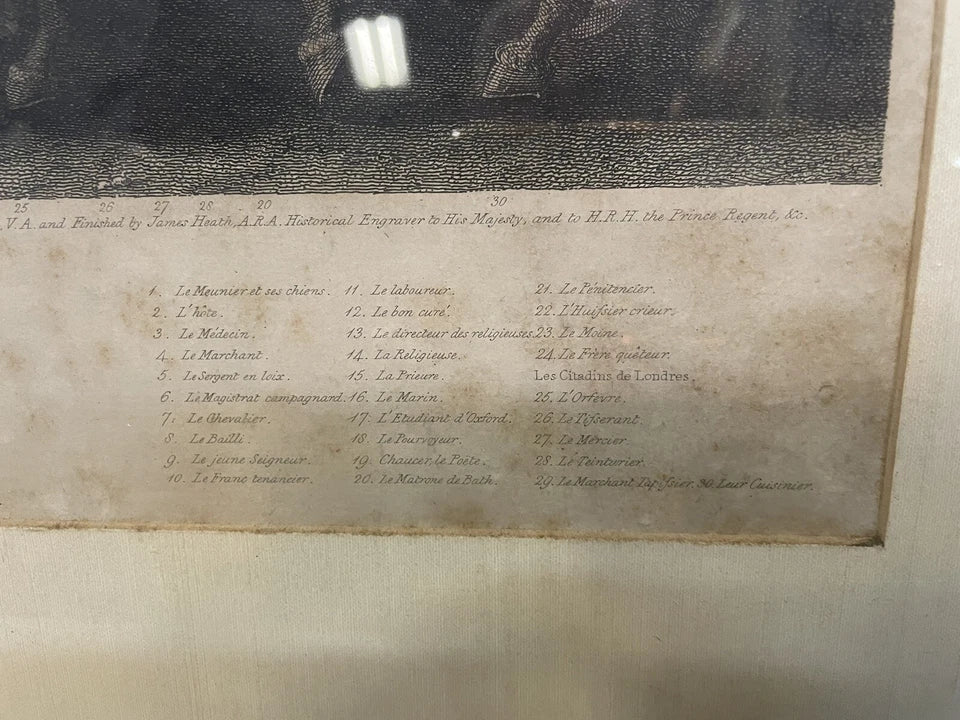 25 26 27 28 20 30
V.A. and Finished by James Heath, A.R.A. Historical Engraver to His Majesty, and to H.R.H. the Prince Regent, &c.
1. Le Meunier et ses chiens.
2. L'hôte.
3. Le Médecin.
4. Le Marchant.
5. Le Sergent en loix.
6. Le Magistrat campagnard.
7. Le Chevalier.
8. Le Bailli.
9. Le jeune Seigneur.
10. Le Franc tenancier.
11. Le laboureur.
12. Le bon curé.
13. Le directeur des religieuses.
14. La Religieuse.
15. La Prieure.
16. Le Marin.
17. L'Etudiant d'Oxford.
18. Le Pourvoyeur.
19. Chaucer, le Poëte.
20. Le Matrone de Bath.
21. Le Pénitencier.
22. L'Huiſsier crieur.
23. Le Moine.
24. Le Frère quêteur.
Les Citadins de Londres.
25. L'Orfevre.
26. Le Tiſserant.
27. Le Mercier.
28. Le Teinturier.
29. Le Marchant Tapiſsier. 30. Leur Cuisinier.